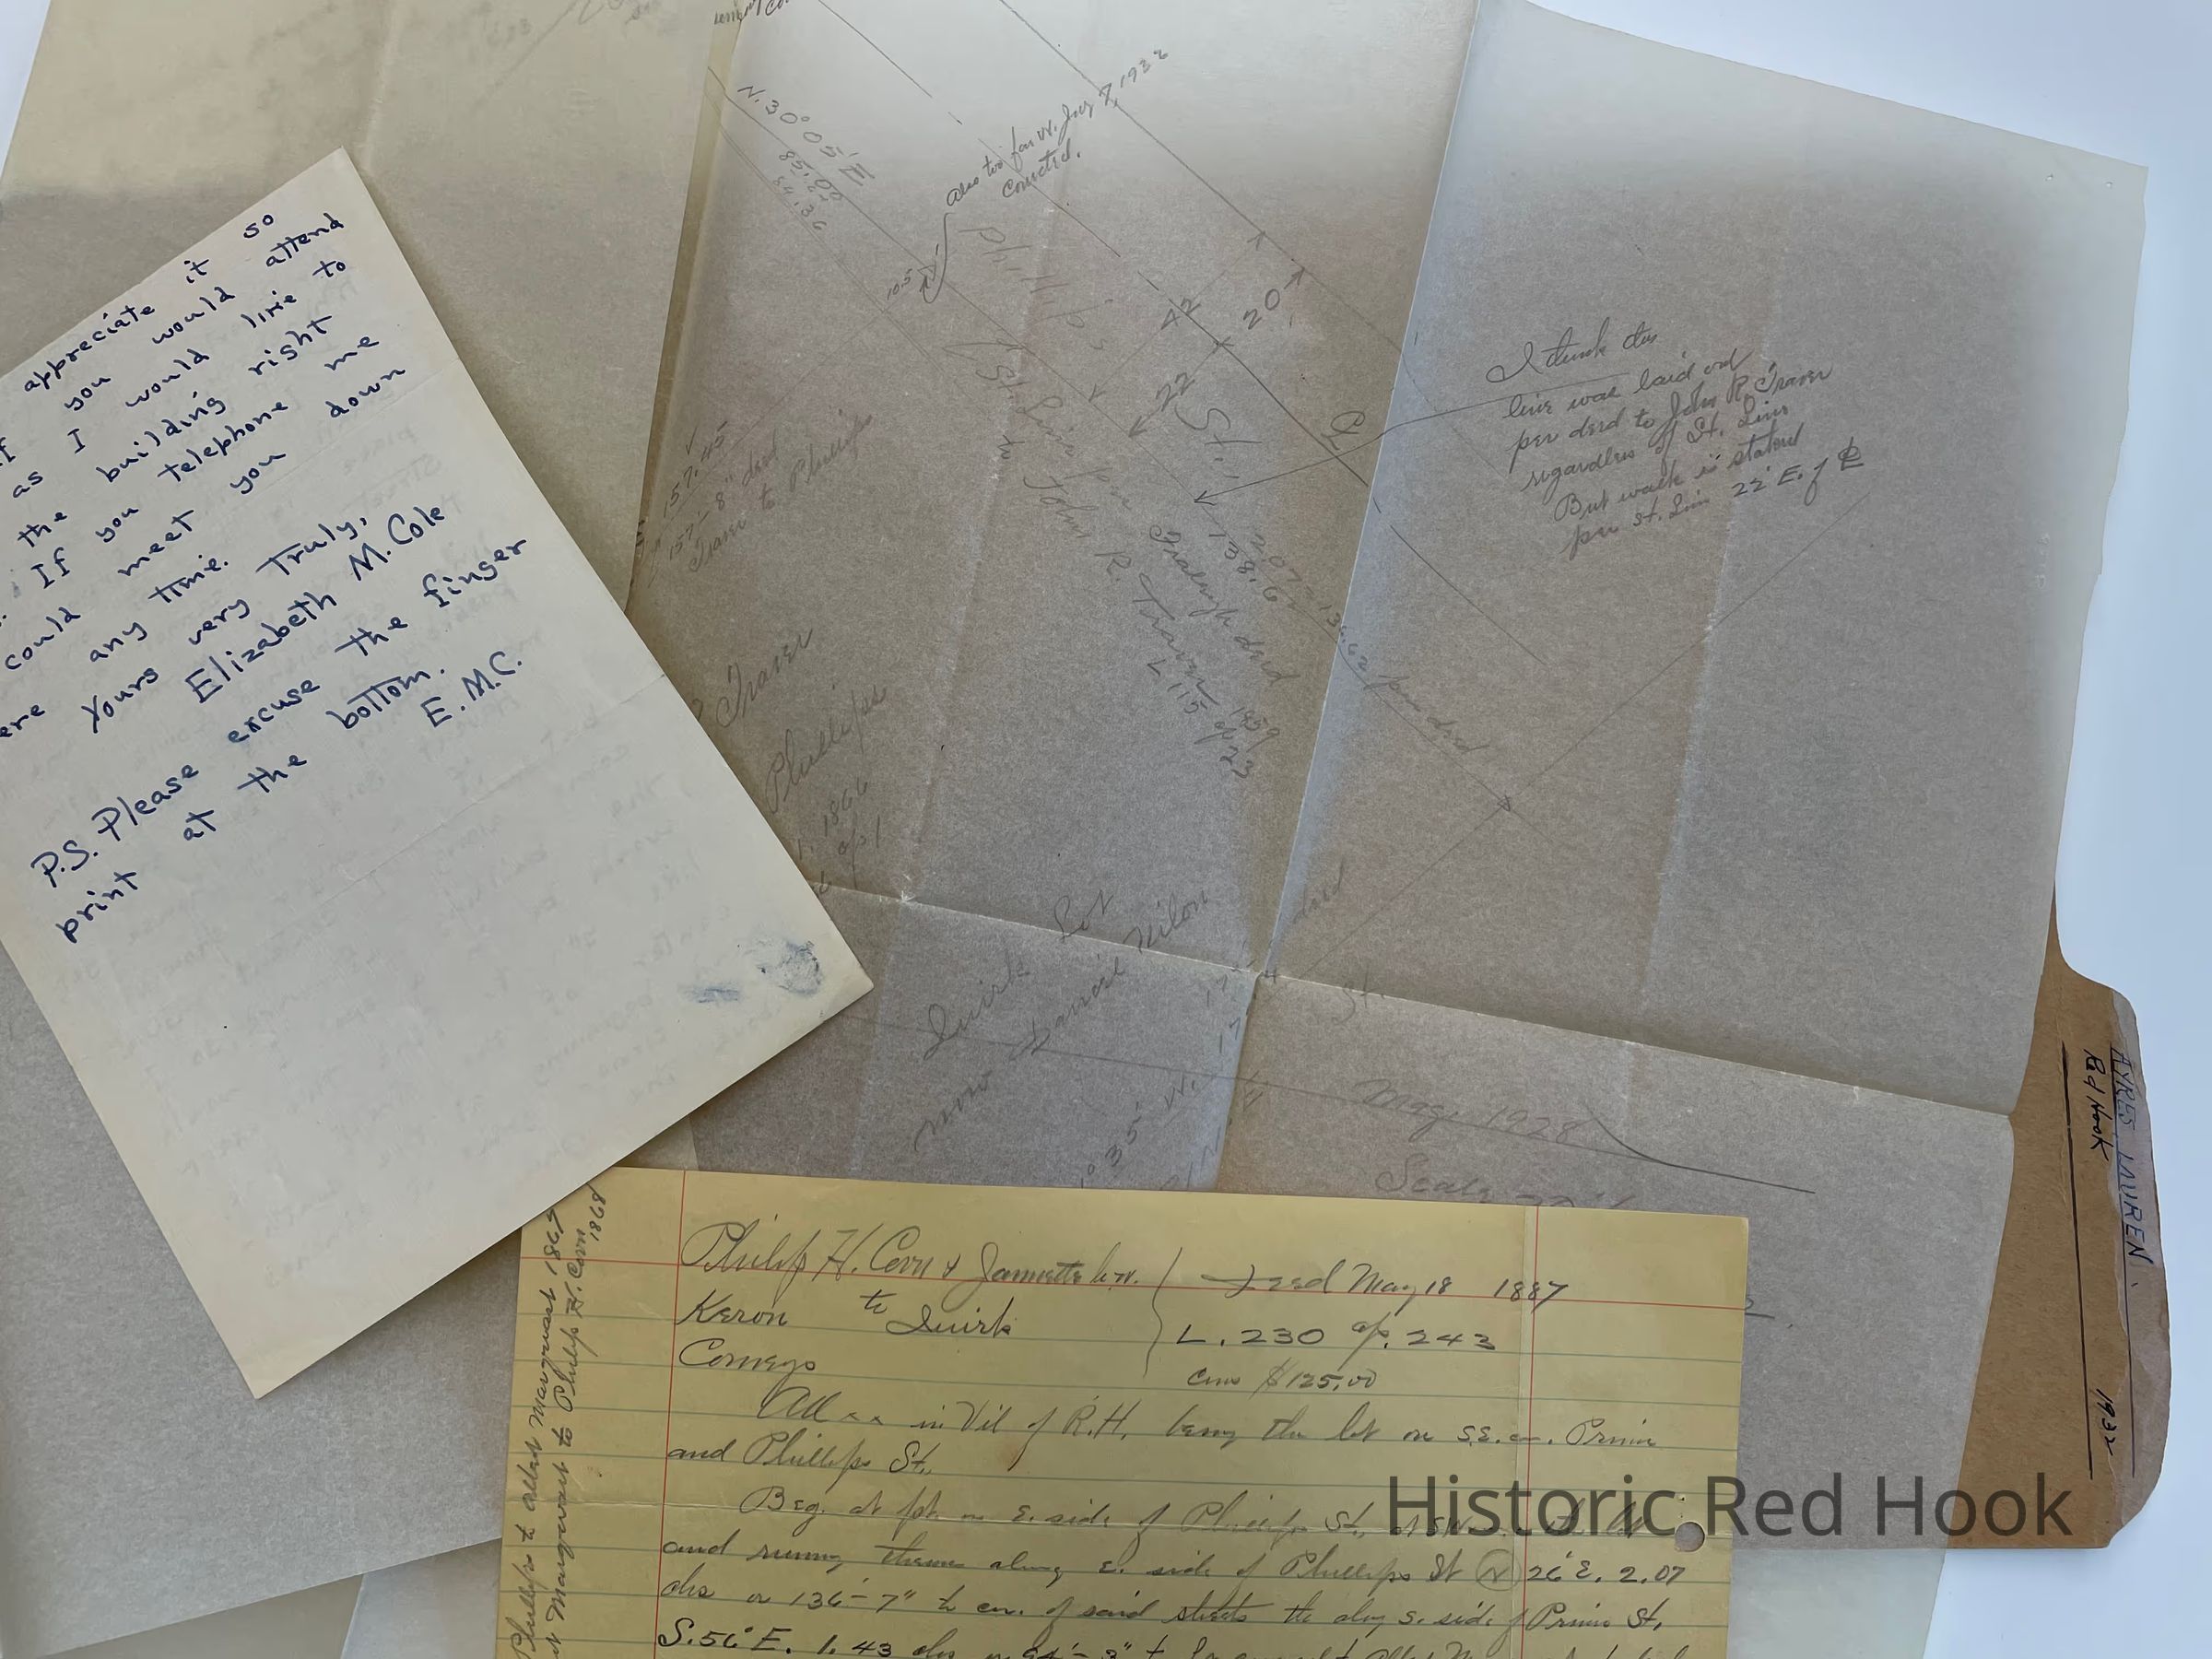 so
appreciate it
If you would attend
as I would like to
the building right
If you telephone me
could meet you down
ere any time.
Yours very truly,
Elizabeth M. Cole
P.S. Please excuse the finger
print at the bottom.
E.M.C.
N. 30° 05' E
85.00
84.36
Also too far W. July 7, 1932
Corrected.
10.5
Phillips St.
42
20
22
I think this
line was laid out
per deed to John R. Traver
regardless of St. Line
But walk is stated
per St. Line 22' E. of ℄
157.45
157'-8" deed
Traver to Phillips
St. Line per Fraleigh deed
to John R. Traver 1859
L 115 p 23
138.6
per deed
Traver
Phillips
1866
Quirk Lot
now Daniel Nilon
deed
St.
May 1928
Scale
AYRES LAUREN.
Red Hook
1932
Phillips to Albert Marquart 1867
Marquart to Philip H. Corn 1868
Philip H. Corn & Jannette h. w. Deed May 18 1887
to
Keron Quirk L. 230 p. 243
Conveys Cons $125.00
All x x in Vil of R.H. being the lot on S.E. cor. Prince
and Phillips St.
Beg. at pt. on E. side of Phillips St.
and runng thence along E. side of Phillips St N 26° E. 2.07
chs or 136'-7" to cor. of said streets th along S. side of Prince St.
S. 56° E. 1.43 chs or 94'-3" to
Historic Red Hook